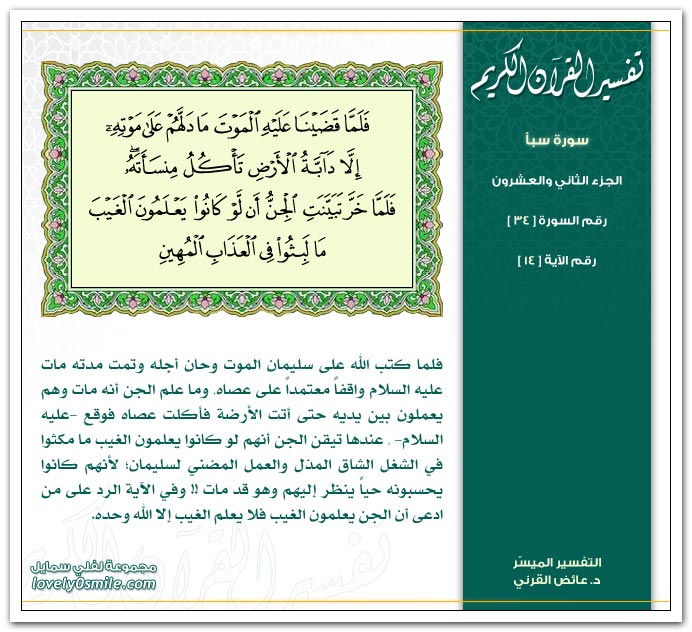 تفسير القرآن الكريم
سورة سبأ
الجزء الثاني والعشرون
رقم السورة [ ٣٤ ]
رقم الآية [ ١٤ ]
فَلَمَّا قَضَيْنَا عَلَيْهِ ٱلْمَوْتَ مَا دَلَّهُمْ عَلَىٰ مَوْتِهِۦٓ
إِلَّا دَآبَّةُ ٱلْأَرْضِ تَأْكُلُ مِنسَأَتَهُۥۖ
فَلَمَّا خَرَّ تَبَيَّنَتِ ٱلْجِنُّ أَن لَّوْ كَانُوا۟ يَعْلَمُونَ ٱلْغَيْبَ
مَا لَبِثُوا۟ فِى ٱلْعَذَابِ ٱلْمُهِينِ
فلما كتب الله على سليمان الموت وحان أجله وتمت مدته مات
عليه السلام واقفاً معتمداً على عصاه. وما علم الجن أنه مات وهم
يعملون بين يديه حتى أتت الأرضة فأكلت عصاه فوقع -عليه
السلام- . عندها تيقن الجن أنهم لو كانوا يعلمون الغيب ما مكثوا
في الشغل الشاق المذل والعمل المضني لسليمان؛ لأنهم كانوا
يحسبونه حياً ينظر إليهم وهو قد مات !! وفي الآية الرد على من
ادعى أن الجن يعلمون الغيب فلا يعلم الغيب إلا الله وحده.
التفسير الميسّر
د. عائض القرني
مجموعة لفلي سمايل
lovely0smile.com
تفسير القرآن الكريم